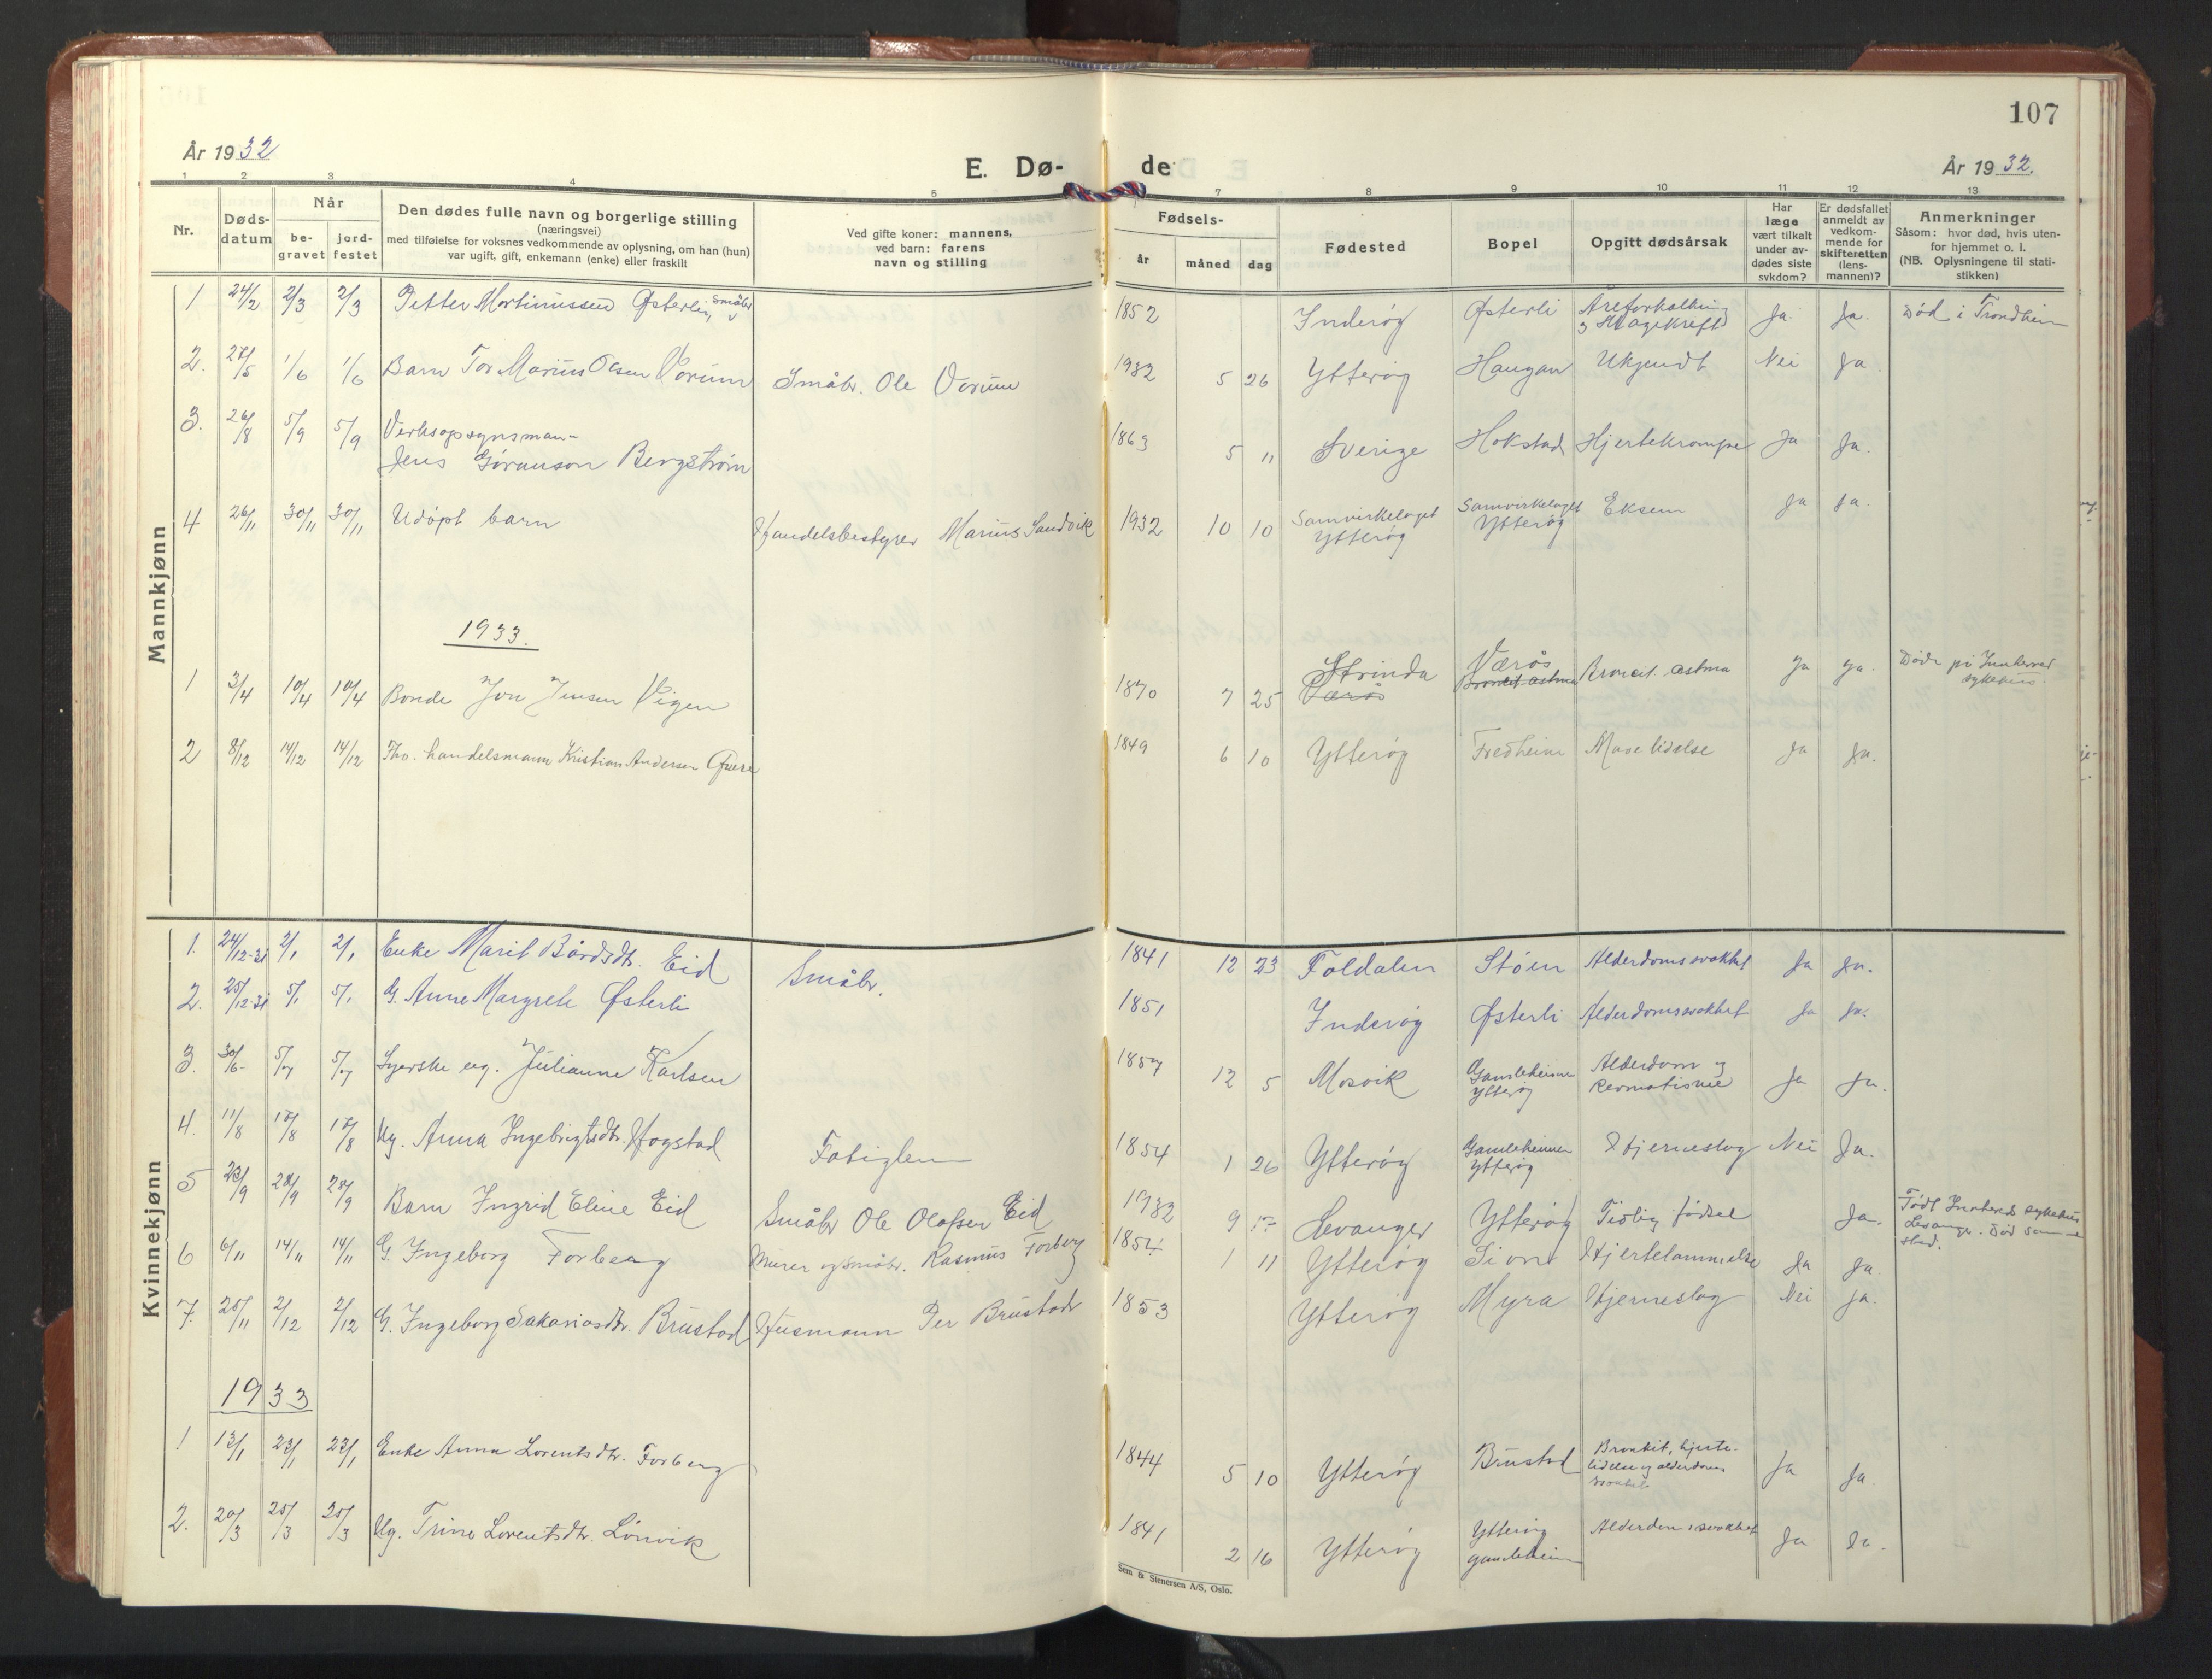 107
År 1932
E. Dø-
de
År 1932.
1 2 3 4 5 7 8 9 10 11 12 13
Nr.
Døds-
datum
Når
be-
gravet
jord-
festet
Den dødes fulle navn og borgerlige stilling
(næringsvei)
med tilføielse for voksnes vedkommende av oplysning, om han (hun)
var ugift, gift, enkemann (enke) eller fraskilt
Ved gifte koner: mannens,
ved barn: farens
navn og stilling
Fødsels-
år
måned
dag
Fødested
Bopel
Opgitt dødsårsak
Har
læge
vært tilkalt
under av-
dødes siste
sykdom?
Er dødsfallet
anmeldt av
vedkom-
mende for
skifteretten
(lens-
mannen)?
Anmerkninger
Såsom: hvor død, hvis uten-
for hjemmet o. l.
(NB. Oplysningene til stati-
stikken)
Mannkjønn
1 24/2 2/3 2/3 Petter Mortinussen Østerli, småbr 1852 Inderøy Østerli Åreforkalkning & Magekreft Ja. Ja. Død i Trondheim
2. 27/5 1/6 1/6 Barn Tor Marius Olsen Vorum Småbr. Ole Vorum 1932 5 26 Ytterøy Haugan Ukjendt Nei Ja.
3. 26/8 5/9 5/9 Verksopsynsman-
Jens Gøranson Bergstrøm 1863 5 11 Sverige Hokstad Hjertekrampe Ja Ja.
4 26/11 30/11 30/11 Udøpt barn Handelsbestyrer Marius Sandvik 1932 10 10 Samvirkelaget Ytterøy Samvirkelaget Ytterøy Eksem Ja Ja.
1933.
1 3/4 10/4 10/4 Bonde Jon Jensen Vigen 1870 7 25 Strinda Værøs Broncit. astma Ja Ja. Døde på Innherred sykehus.
2 8/12 14/12 14/12 Fhv. handelsmann Kristian Andersen 1849 6 10 Ytterøy Fredheim Mave lidelse Ja Ja.
Kvinnekjønn
1. 24/12-31 2/1 2/1 Enke Marit Bårdsdtr. Eid Småbr. 1841 12 23 Foldalen Støen Alderdomssvakhet Ja Ja.
2. 25/12-31 5/1 5/1 G. Anne Margrete Østerli 1851 Inderøy Østerli Alderdomssvakhet Ja Ja.
3. 30/6 5/7 5/7 Syerske ug. Julianne Karlsen 1857 12 5 Mosvik Gamleheimen Ytterøy Alderdom og Reomatisme Ja Ja.
4. 11/8 17/8 17/8 Ug. Anna Ingebrigtsdtr. Hogstad Fatiglem 1854 1 26 Ytterøy Gamleheimen Ytterøy Hjerneslag Nei Ja.
5 28/9 28/9 Barn Ingrid Eline Eid Småbr Ole Olafsen Eid 1932 9 Levanger Ytterøy Tidlig fødsel Ja. Født Innhered sykehus Levanger. Død samme sted.
6 6/11 14/11 14/11 G. Ingeborg Forberg Murer og småbr. Rasmus Forberg 1854 1 11 Ytterøy Sion Hjertelammelse Ja Ja.
7. 25/11 2/12 2/12 G. Ingeborg Sakariasdtr. Brustad Husmann Per Brustad 1853 Ytterøy Myra Hjerneslag Nei ja.
1933
1 13/1 23/1 23/1 Enke Anna Lorentsdtr. Forberg 1844 5 10 Ytterøy Brustad Bronkit, hjerte-
lidelse og alderdoms
svakhet Ja Ja.
2. 20/3 25/3 25/3 Ug. Trine Lorentsdtr. Lönvik 1841 2 16 Ytterøy Ytterøy gamleheim Alderdomssvakhet Ja Ja.
Sem & Stenersen A/S, Oslo.